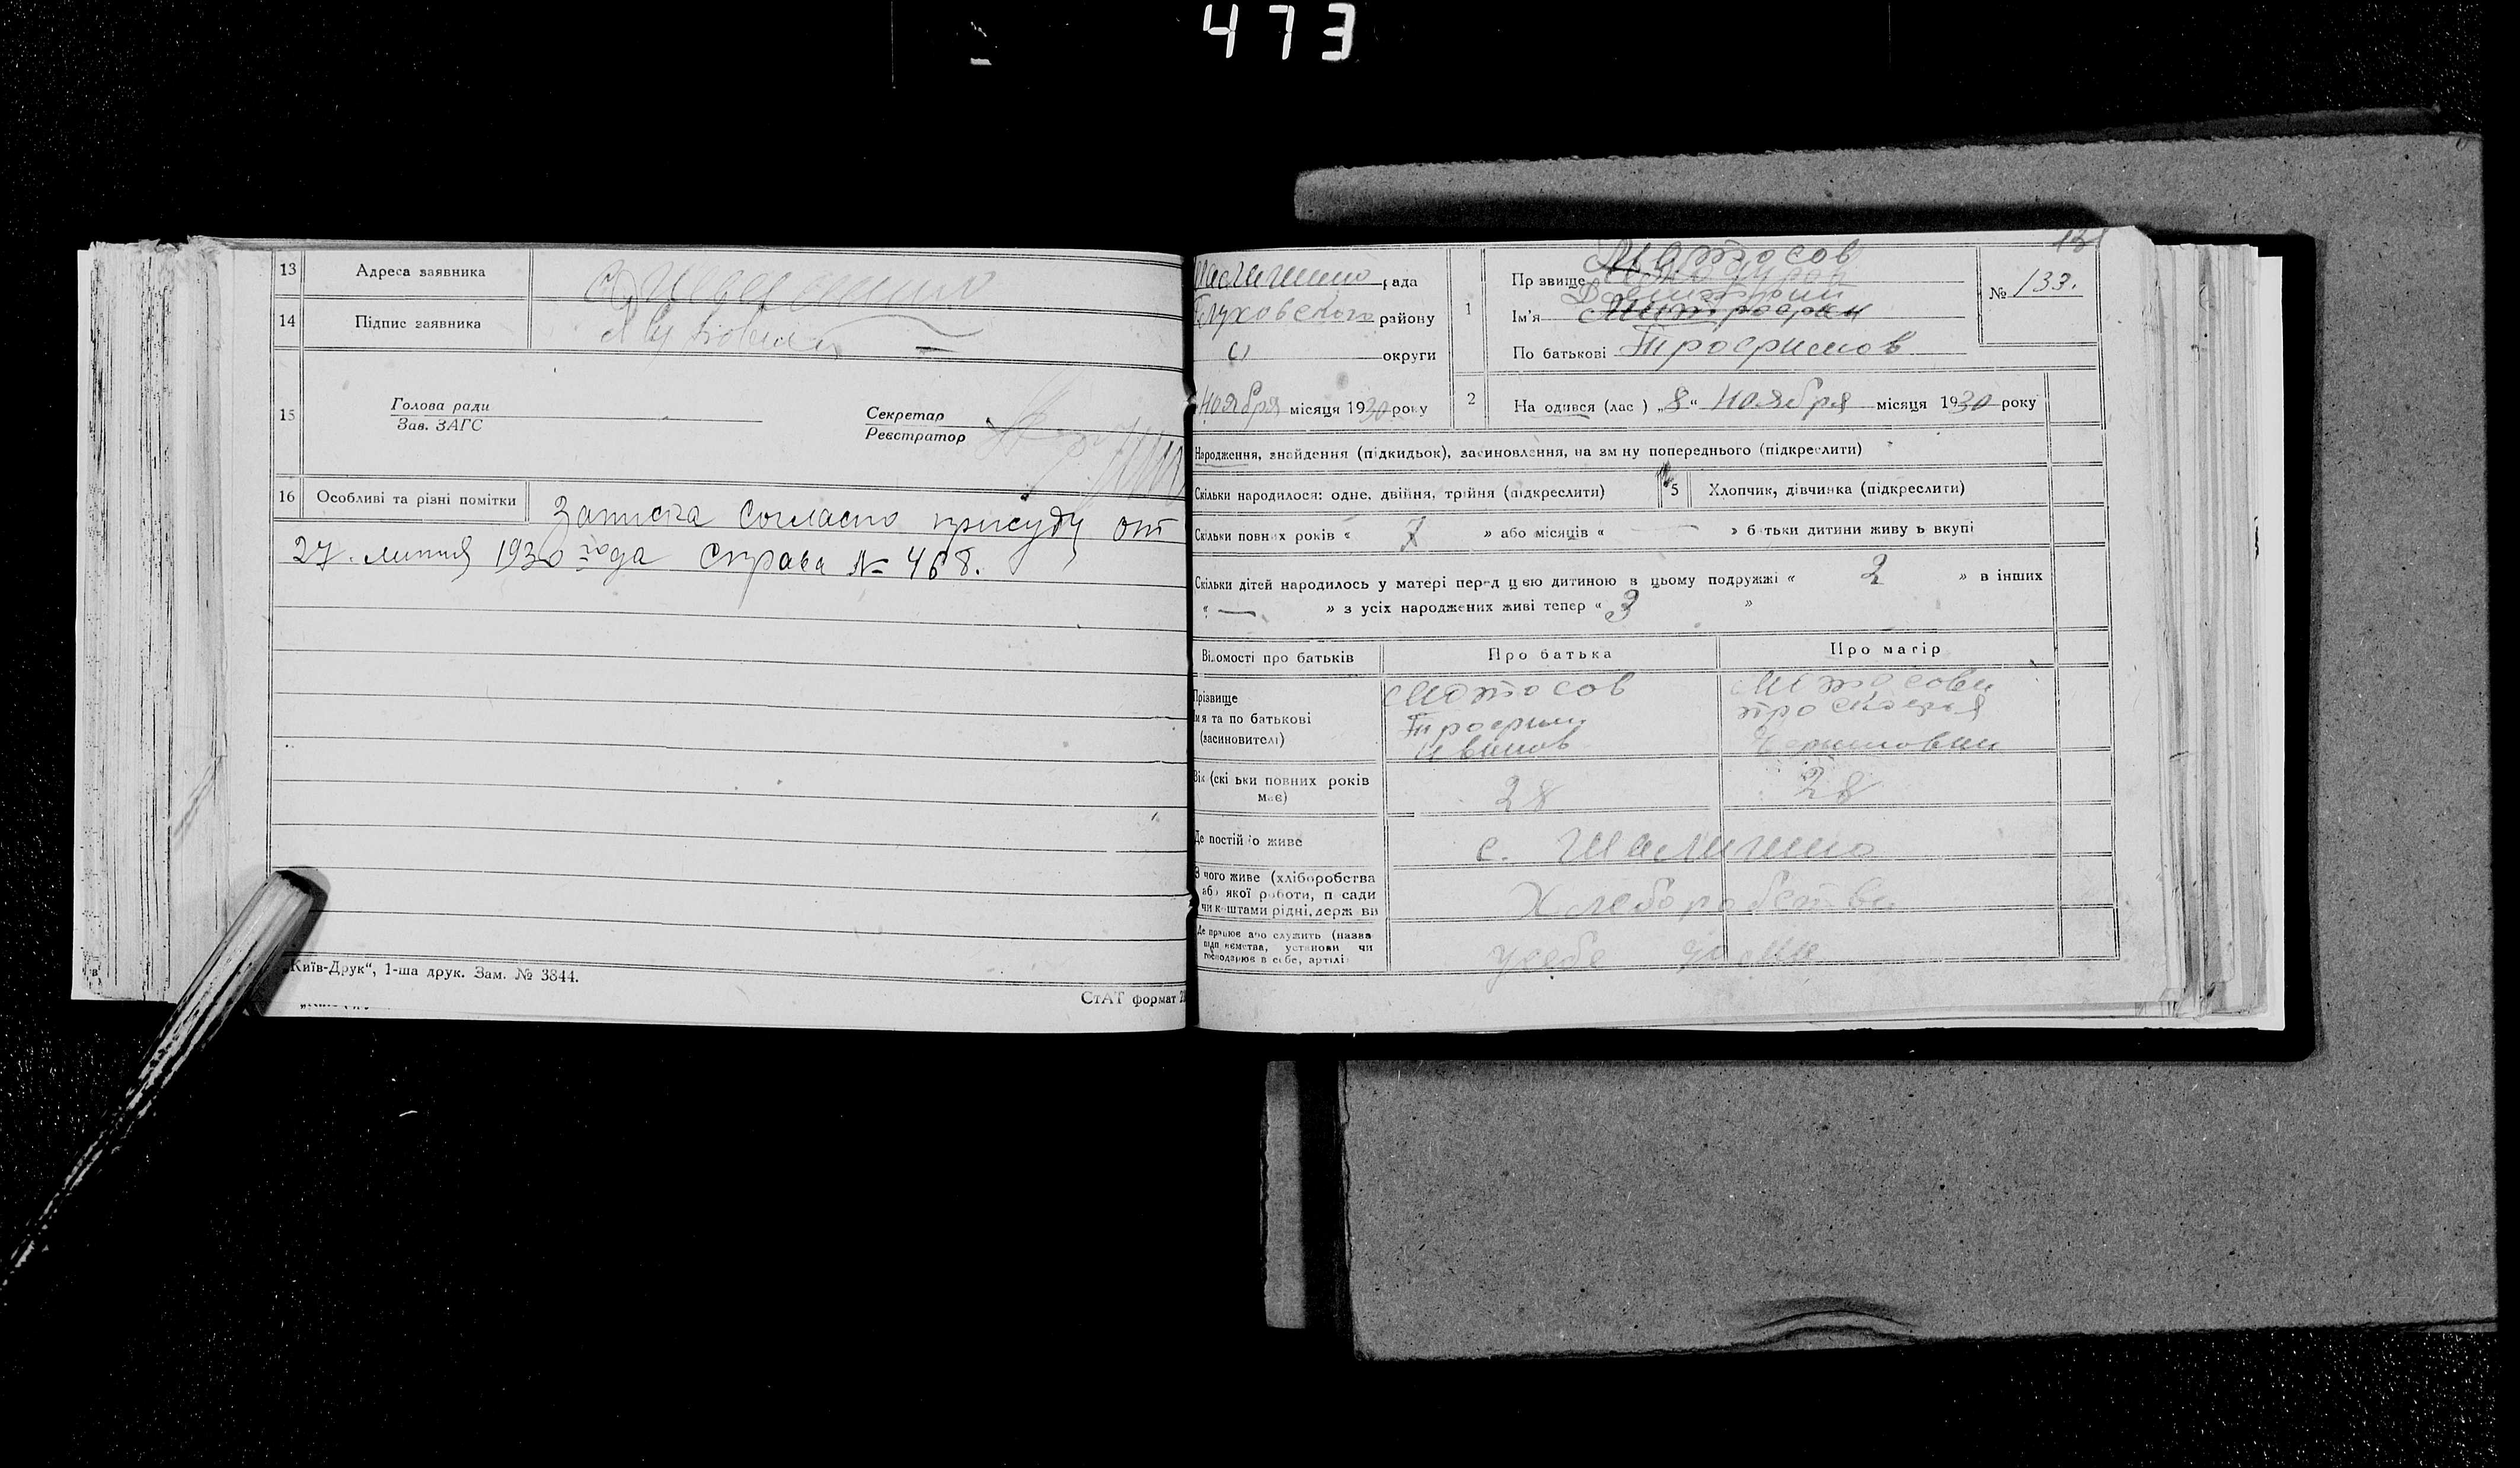 473
13 Адреса заявника
14 Підпис заявника
15 Голова ради
Зав. ЗАГС
Секретар
Реєстратор
16 Особливі та різні помітки Записка согласно присуду от
27. липня 1930 года справа № 468.
„Київ-Друк“, 1-ша друк. Зам. № 3844.
СтАТ формат
131
Шалигино рада
Глуховского району
округи
Ноября місяця 1930 року
1 Пр звище Матосов
Ім'я Дмитрий Митрофан
По батькові Трофимов
№ 133.
2 На одився (лас ) „8“ Ноября місяця 1930 року
Народження, знайдення (підкидьок), засиновлення, на зм ну попереднього (підкреслити)
Скільки народилося: одне, двійня, трійня (підкреслити)
5 Хлопчик, дівчинка (підкреслити)
Скільки повних років « 7 » або місяців « — » б тьки дитини живу ь вкупі
Скільки дітей народилось у матері перед цією дитиною в цьому подружжі « 2 » в інших
« — » з усіх народжених живі тепер « 3 »
Відомості про батьків Про батька Про матір
Прізвище
імя та по батькові
(засиновителі)
Матосов
Трофим
Иванов
Матосова
Вік (скі ьки повних років
має)
28 28
Де постій о живе с. Шалигино
З чого живе (хліборобства
або якої роботи, п сади
чи к штами рідні, держ ви
Хлеборобства
Де працює або служить (назва
підп иємства, установи чи
господарює в себе, артілі